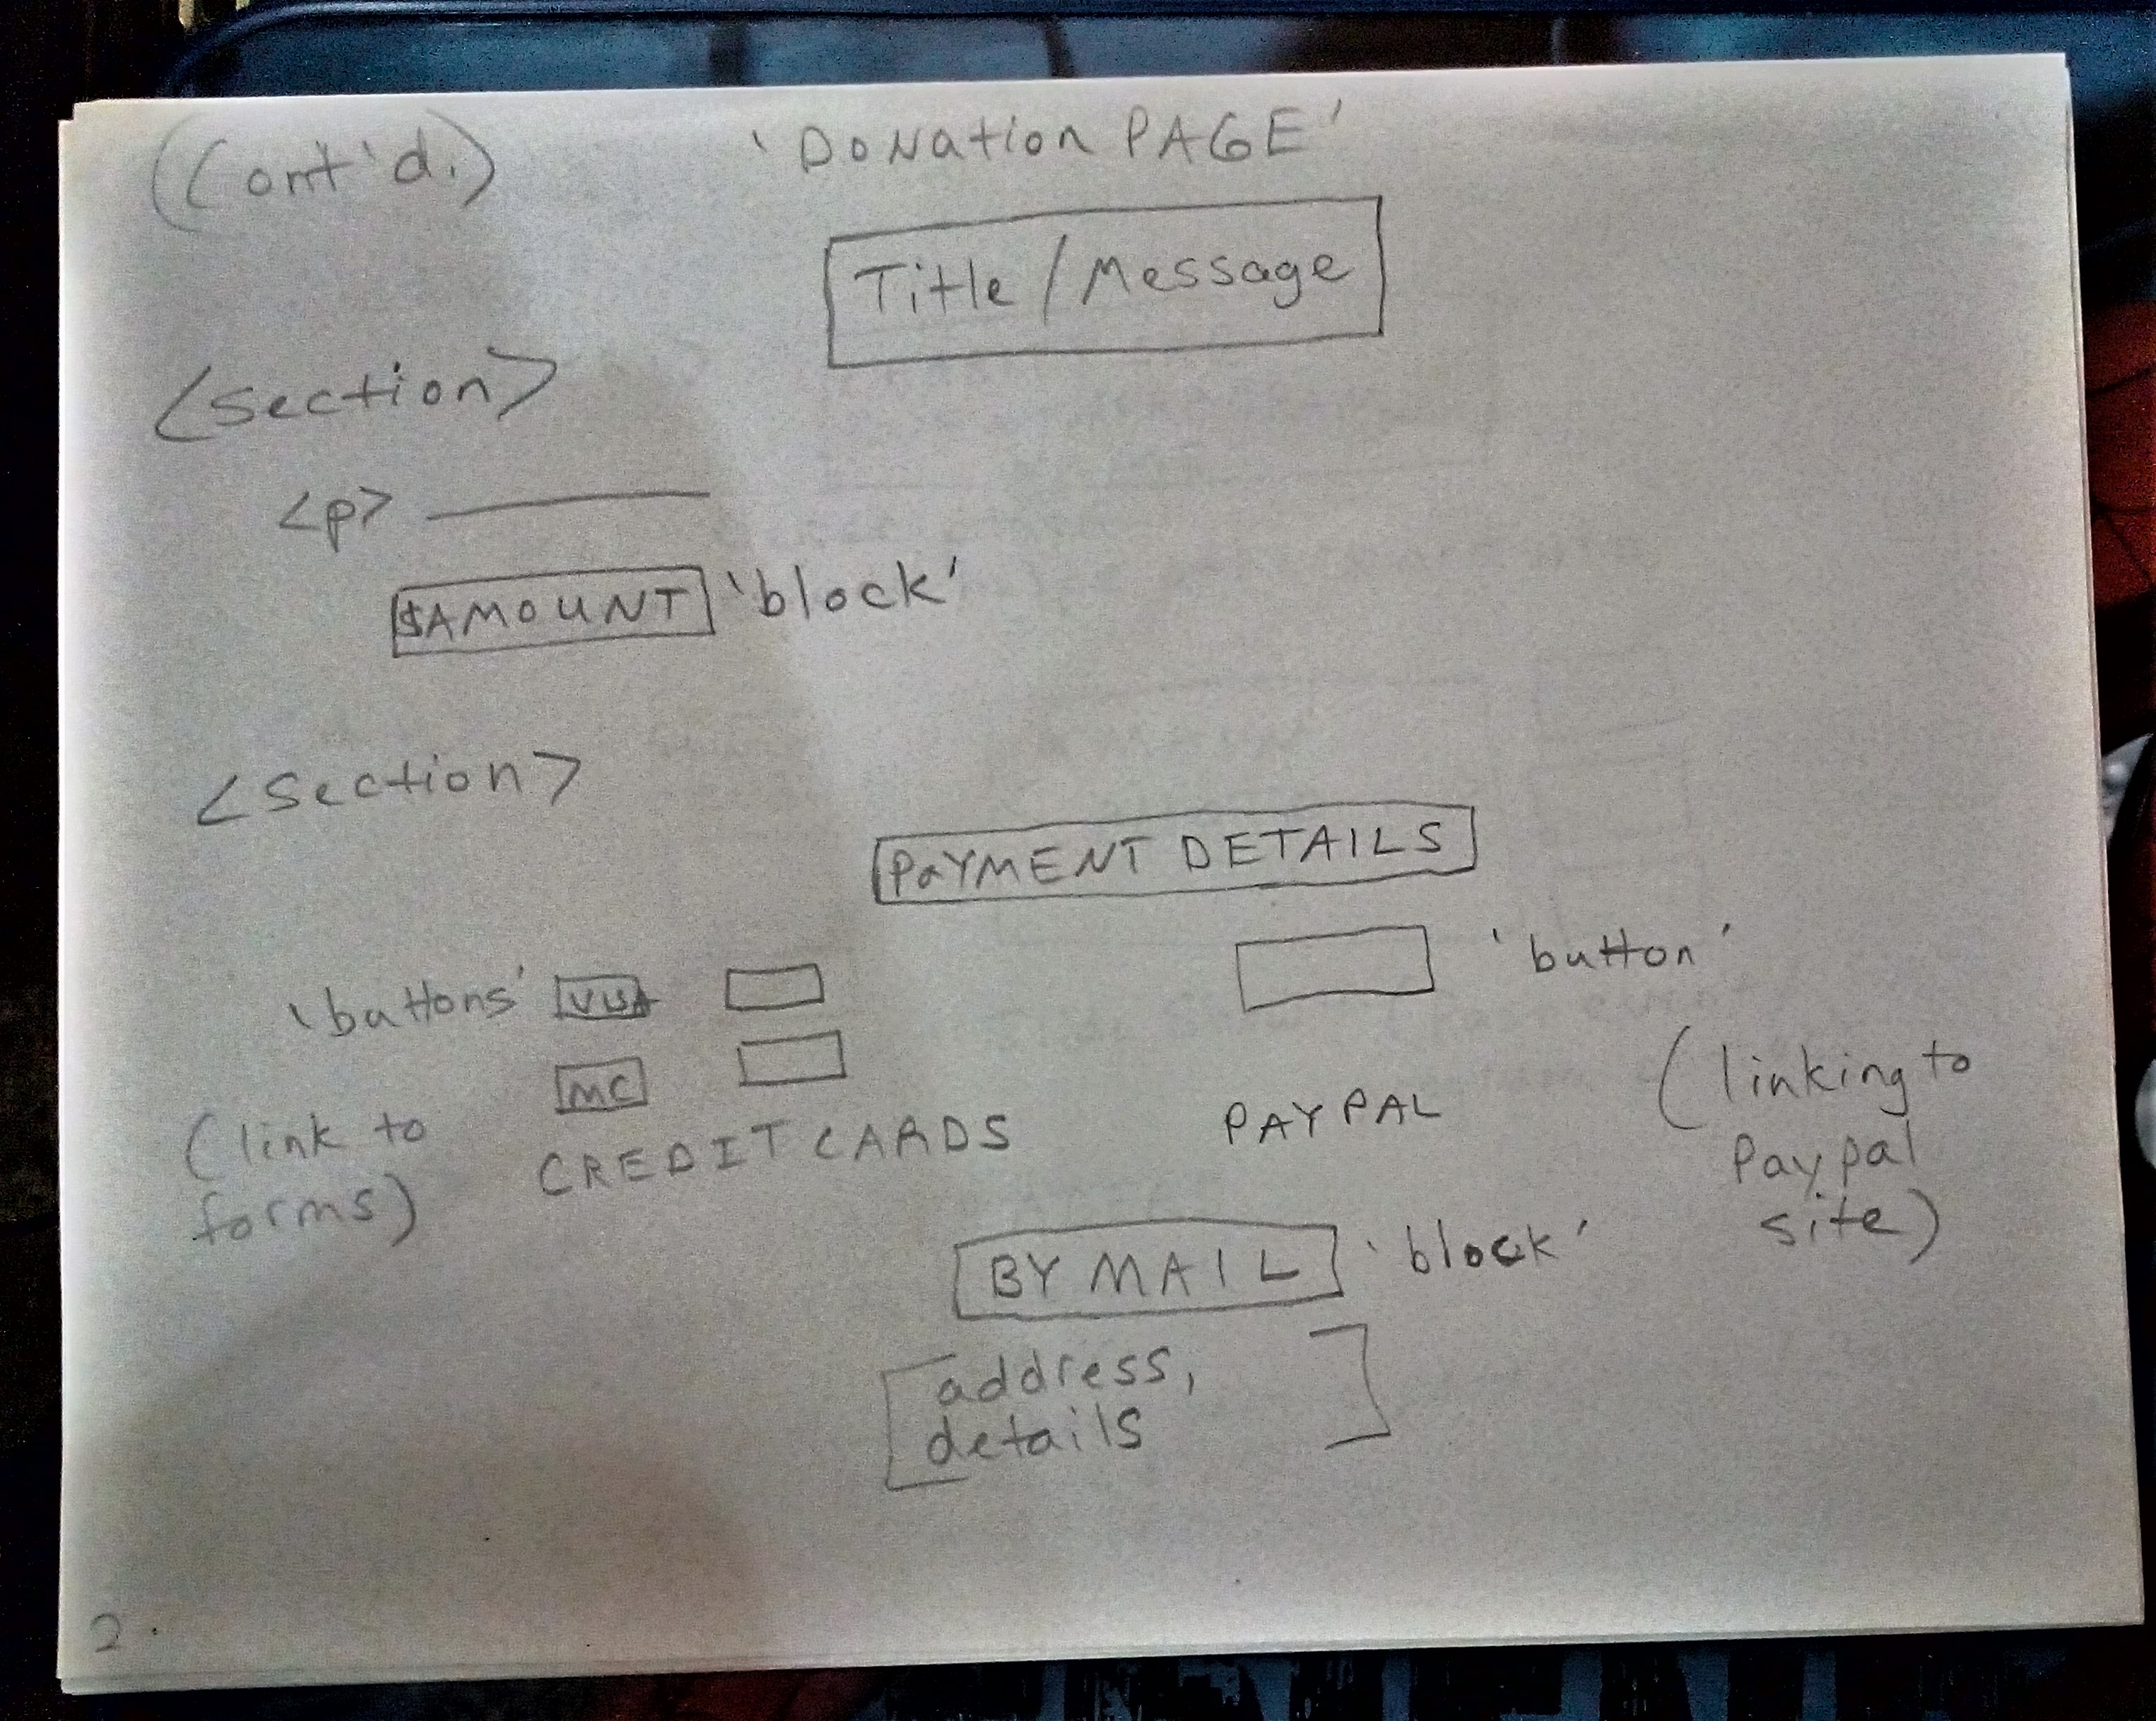 (Cont'd.)
'DONation PAGE'
Title/Message
<section>
<p>
$AMOUNT 'block'
<section>
PaYMENT DETAILS
'buttons' VISA
MC
(link to
forms)
CREDIT CARDS
'button'
PAYPAL
(linking to
Paypal
site)
BY MAIL 'block'
address,
details
2.